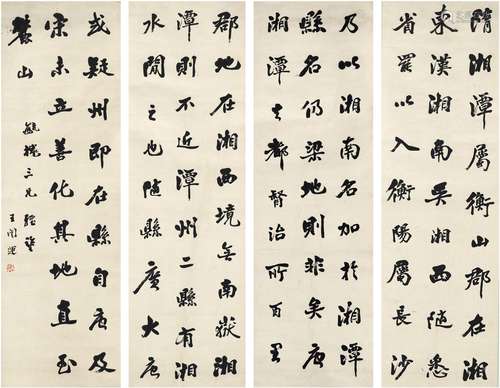 隋湘潭屬衡山郡在湘
東漢湘南吳湘西隨悉
省罷以入衡陽屬長沙
乃以湘南名加於湘潭
縣名仍梁地則非矣唐
湘潭去都督治所百里
郡地在湘西境無南嶽湘
潭則不近潭州二縣有湘
水閒之也隨縣廣大唐
或疑州即在縣自唐及
宋未立善化其地直至
麓山
毓槐三兄 雅鑒
王闓運